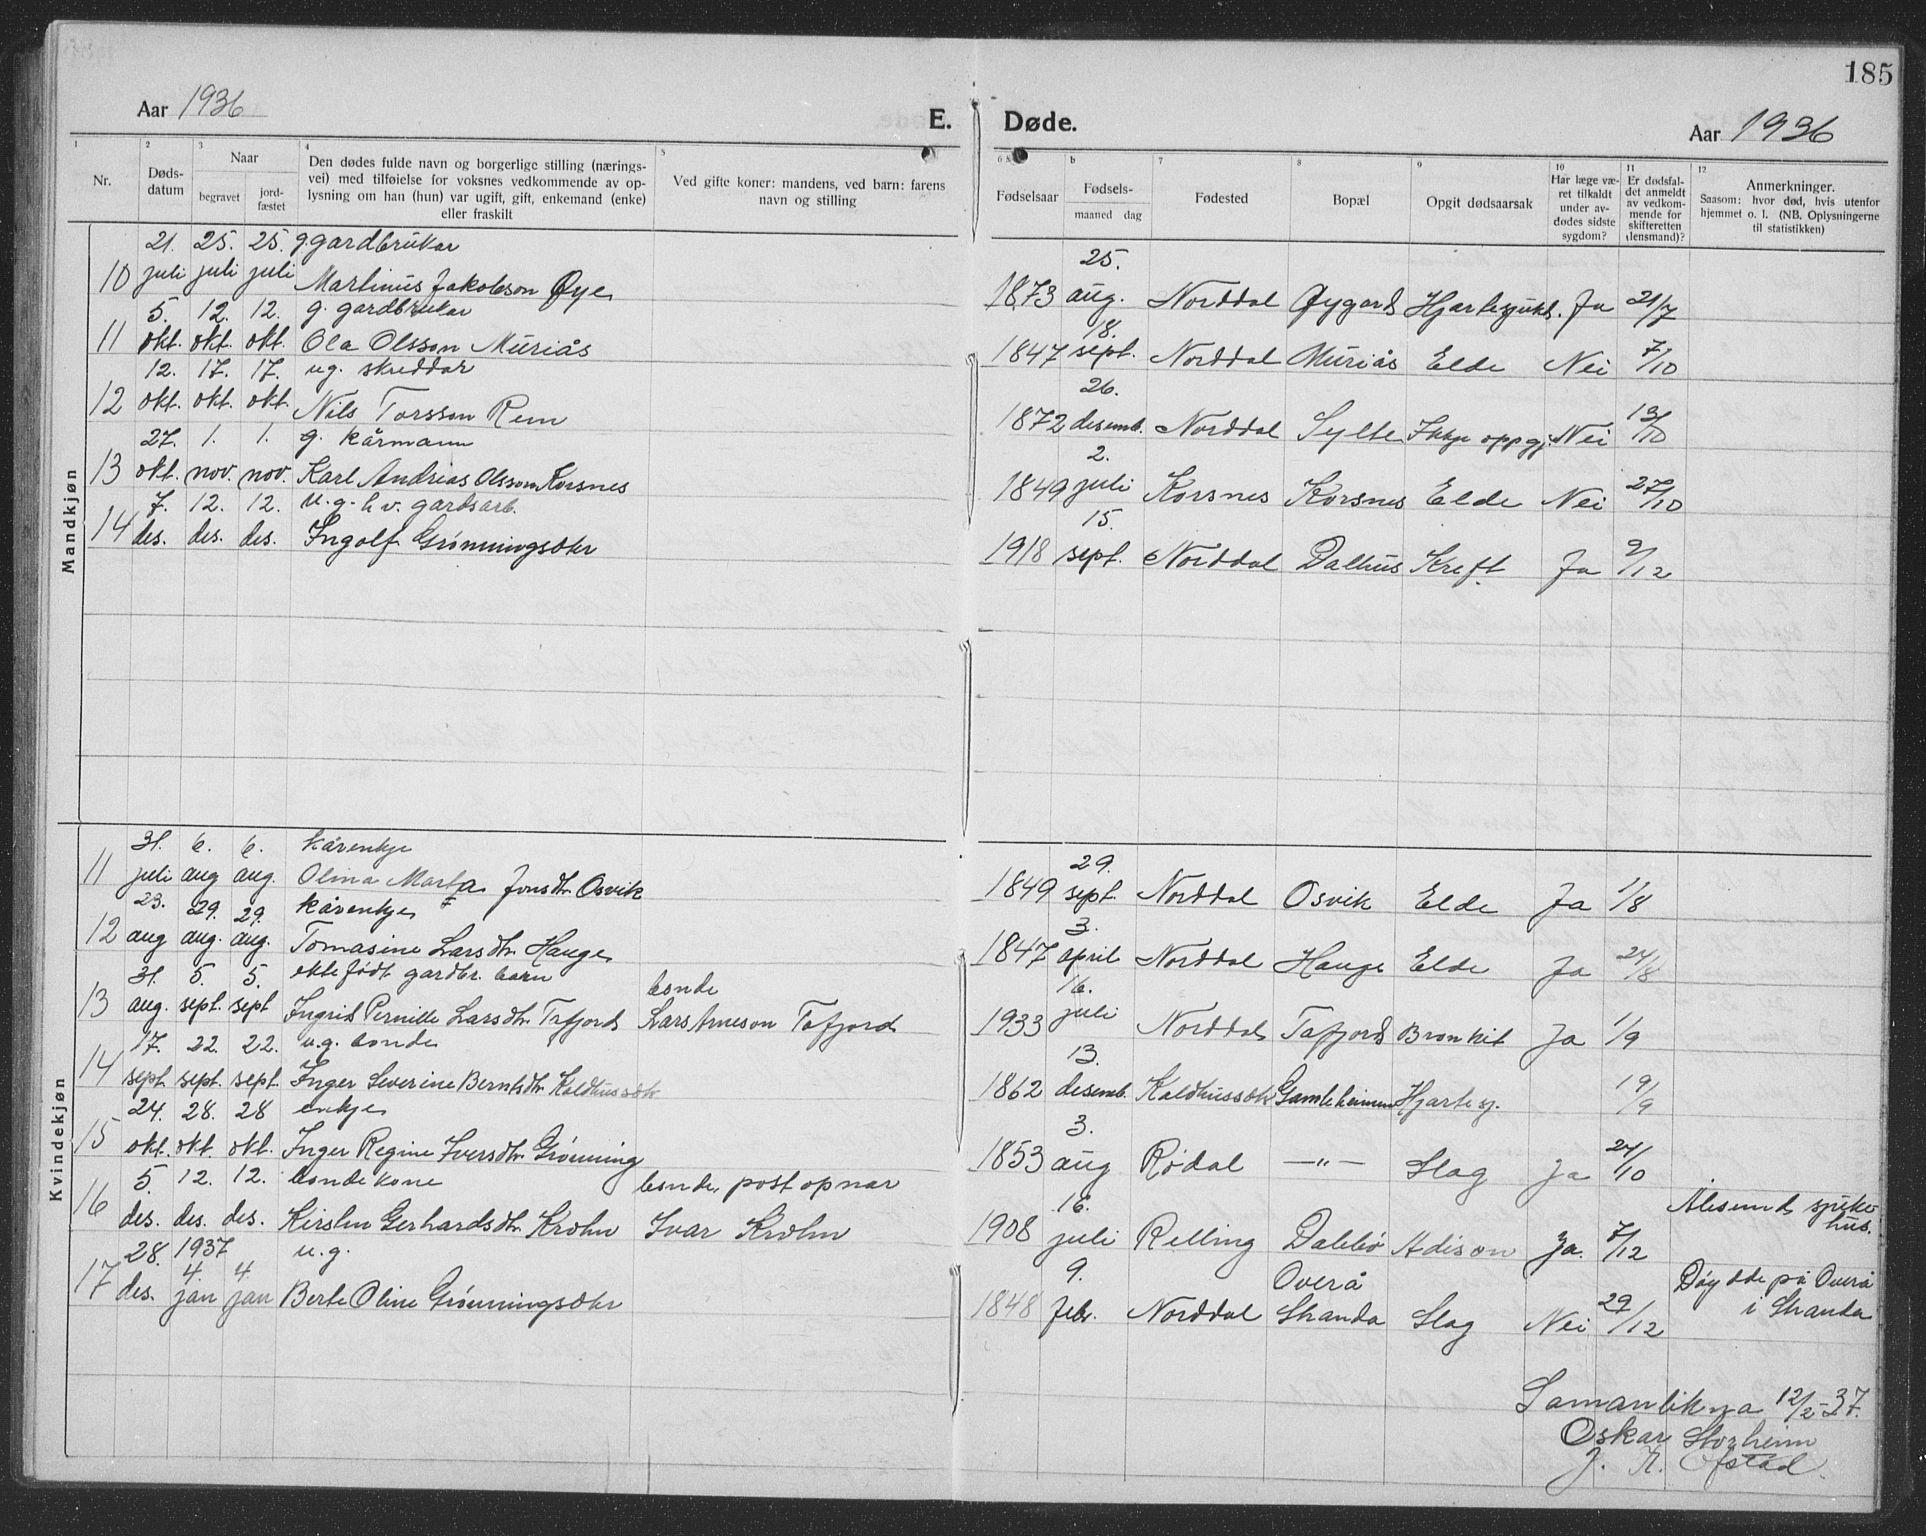 185
Aar 1936 E. Døde. Aar 1936
1 2 3 4 5 6 & b 7 8 9 10 11 12
Nr. Døds-datum Naar begravet jord-fæstet Den dødes fulde navn og borgerlige stilling (nærings-vei) med tilføielse for voksnes vedkommende av op-lysning om han (hun) var ugift, gift, enkemand (enke) eller fraskilt Ved gifte koner: mandens, ved barn: farens navn og stilling Fødselsaar Fødsels-maaned dag Fødested Bopæl Opgit dødsaarsak Har læge væ-ret tilkaldt under av-dødes sidste sygdom? Er dødsfal-det anmeldt av vedkom-mende for skifteretten (lensmand)? Anmerkninger. Saasom: hvor død, hvis utenfor hjemmet o. l. (NB. Oplysningerne til statistikken)
Mandkjøn
21. 25. 25. g. gardbrukar 25.
10 juli juli juli Martinus Jakobson Øye 1873 aug. Norddal Øygard Hjartesjukd. Ja 21/7
5. 12. 12. g. gardbrukar 18.
11 okt. okt. okt. Ola Olsson Muriås 1847 sept. Norddal Muriås Elde Nei 7/10
12. 17. 17. ug. skreddar 26.
12 okt. okt. okt. Nils Torsson Rem 1872 desemb. Norddal Sylte Ikkje oppgj. Nei 13/10
27. 1. 1. g. kårmann 2.
13 okt. nov. nov. Karl Andrias Olsson Korsnes 1849 juli Korsnes Korsnes Elde Nei 27/10
7. 12. 12. u.g. h.v. gardsarb. 15.
14 des. des. des. Ingolf Grønningsæter 1918 sept. Norddal Dalhus Kreft Ja 9/12
Kvindekjøn
31. 6. 6. kårenkje 29.
11 juli aug aug. Olina Marta Jonsdtr. Osvik 1849 sept. Norddal Osvik Elde Ja 1/8
23. 29. 29. kårenkje 3.
12 aug aug. aug. Tomasine Larsdtr. Hauge 1847 april Norddal Hauge Elde Ja 24/8
31. 5. 5. ektefødt gardbr. barn bonde 16.
13 aug. sept. sept Ingrid Pernille Larsdtr. Tafjord Lars Arneson Tafjord 1933 juli Norddal Tafjord Bronkit Ja 1/9
17. 22. 22. u.g. bonde 13.
14 sept sept. sept. Inger Severine Berntsdtr. Kaldhussæter 1862 desemb. Kaldhussæter Gamleheimen Hjartesj. 19/9
24. 28. 28 enkje 3.
15 okt. okt. okt. Inger Regine Iversdtr. Grønning 1853 aug Rødal —"— Slag Ja 24/10
5. 12. 12. bondekone bonde, postopnar 16. Ålesund sjuke-hus.
16 des. des. des. Kirsten Gerhardsdtr. Krohn Ivar Krohn 1908 juli Relling Dalebø Adison Ja. 7/12
28. 1937 4. 4. u.g. 9. Overå Døydde på Overå
17 des. jan jan Berte Oline Grønningsæter 1848 febr. Norddal Stranda Slag Nei 29/12 i Stranda
Samanlikna 12/2-37.
Oskar Storheim
J. K. Ofstad.